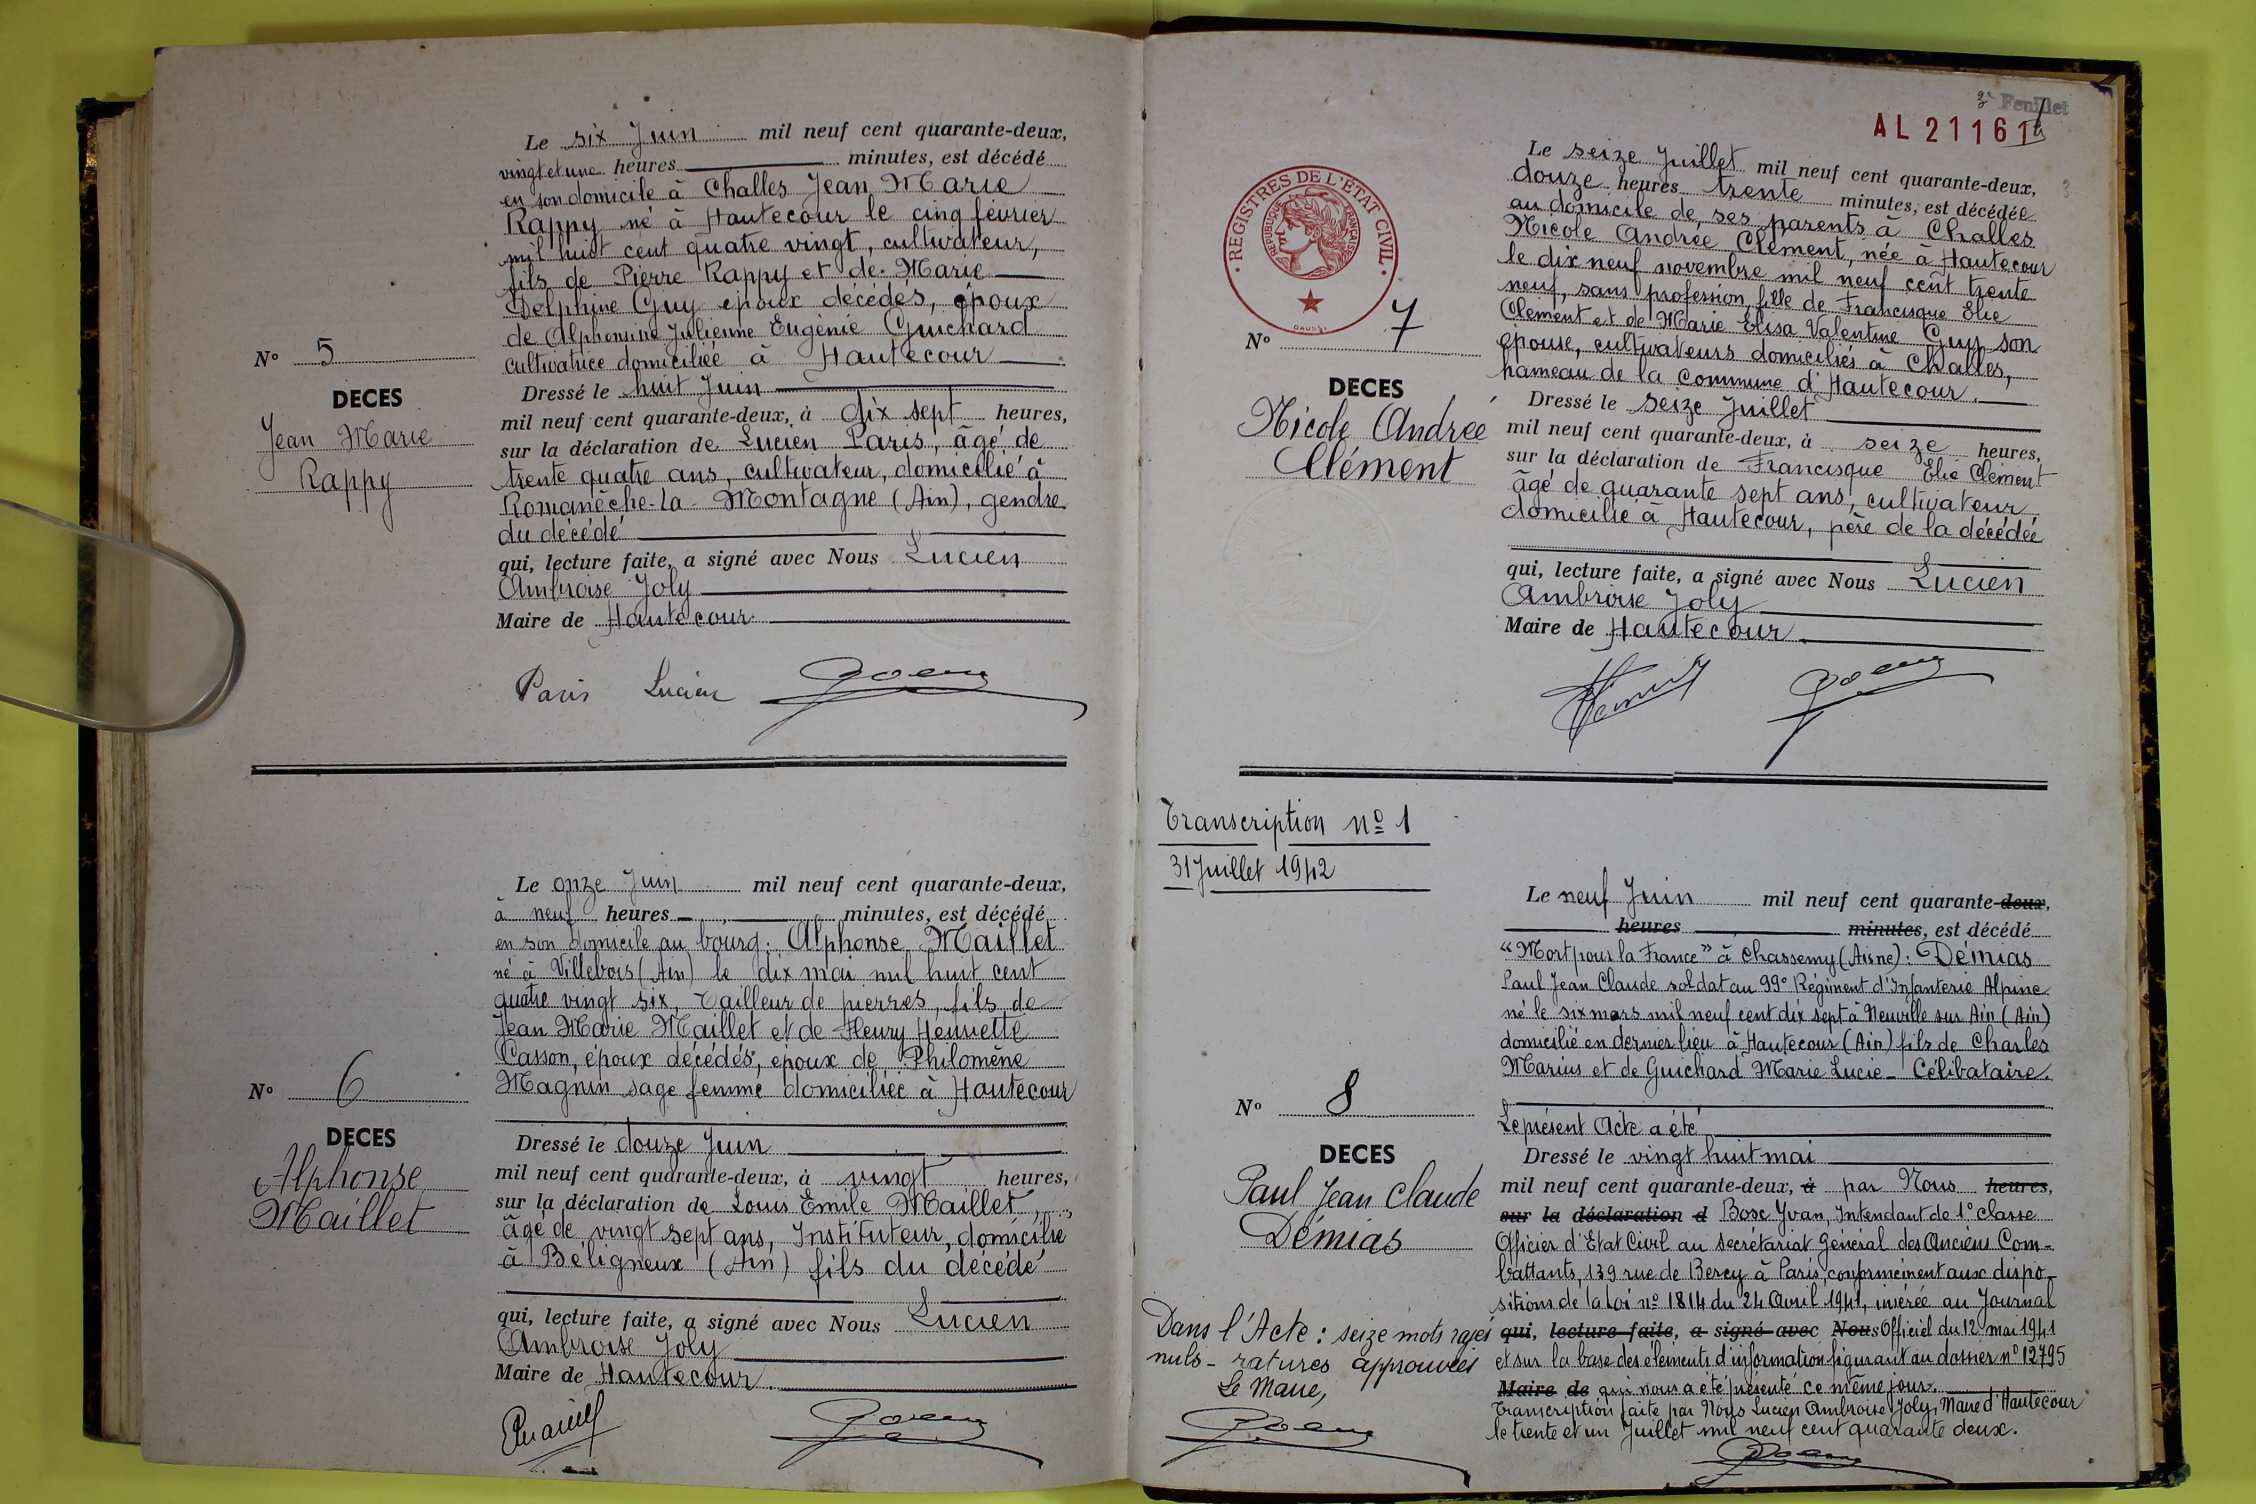 Le six Juin mil neuf cent quarante-deux,
vingt et une heures minutes, est décédé
en son domicile à Challes Jean Marie
Rappy né à Hautecour le cinq février
mil huit cent quatre vingt, cultivateur,
fils de Pierre Rappy et de Marie
Delphine Guy époux décédés, époux
de Alphonsine Julienne Eugénie Guichard
cultivatrice domiciliée à Hautecour
N° 5
DECES
Jean Marie
Rappy
Dressé le huit Juin
mil neuf cent quarante-deux, à dix sept heures,
sur la déclaration de Lucien Paris, âgé de
trente quatre ans, cultivateur, domicilié à
Romanèche-la-Montagne (Ain), gendre
du décédé
qui, lecture faite, a signé avec Nous Lucien
Ambroise Joly
Maire de Hautecour
Paris Lucien
Le onze Juin mil neuf cent quarante-deux,
à neuf heures minutes, est décédé
en son domicile au bourg: Alphonse Maillet
né à Villebois (Ain) le dix mai mil huit cent
quatre vingt six, tailleur de pierres, fils de
Jean Marie Maillet et de Fleury Henriette
Casson, époux décédés, époux de Philomène
Magnin sage femme domiciliée à Hautecour
N° 6
DECES
Alphonse
Maillet
Dressé le douze Juin
mil neuf cent quarante-deux, à vingt heures,
sur la déclaration de Louis Emile Maillet,
âgé de vingt sept ans, Instituteur, domicilié
à Béligneux (Ain) fils du décédé
qui, lecture faite, a signé avec Nous Lucien
Ambroise Joly
Maire de Hautecour.
Feuillet
AL 21161
REGISTRES DE L'ETAT CIVIL
REPUBLIQUE FRANÇAISE
Le seize Juillet mil neuf cent quarante-deux,
douze heures trente minutes, est décédée
au domicile de ses parents à Challes
Nicole Andrée Clément, née à Hautecour
le dix neuf novembre mil neuf cent trente
neuf, sans profession, fille de Francisque Elie
Clément et de Marie Elisa Valentine Guy son
épouse, cultivateurs domiciliés à Challes,
hameau de la Commune d'Hautecour.
N° 7
DECES
Nicole Andrée
Clément
Dressé le seize Juillet
mil neuf cent quarante-deux, à seize heures,
sur la déclaration de Francisque Elie Clément
âgé de quarante sept ans, cultivateur
domicilié à Hautecour, père de la décédée
qui, lecture faite, a signé avec Nous Lucien
Ambroise Joly
Maire de Hautecour
Transcription n° 1
31 Juillet 1942
Le neuf Juin mil neuf cent quarante-deux,
heures minutes, est décédé
"Mort pour la France" à Chassemy (Aisne): Démias
Paul Jean Claude soldat au 99e Régiment d'Infanterie Alpine
né le six mars mil neuf cent dix sept à Neuville sur Ain (Ain)
domicilié en dernier lieu à Hautecour (Ain) fils de Charles
Marius et de Guichard Marie Lucie - Célibataire.
N° 8
DECES
Paul Jean Claude
Démias
Le présent Acte a été
Dressé le vingt huit mai
mil neuf cent quarante-deux, à par Nous heures,
sur la déclaration d Bosc Yvan, Intendant de 1° classe
Officier d'Etat Civil au Secrétariat Général des Anciens Com-
battants, 139 rue de Bercy à Paris, conformément aux dispo-
sitions de la loi n° 1814 du 24 Avril 1941, insérée au Journal
qui, lecture faite, a signé avec Nous Officiel du 12 mai 1941
et sur la base des éléments d'information figurant au dossier n° 12795
Maire de qui nous a été présenté ce même jour.
Transcription faite par Nous Lucien Ambroise Joly, Maire d'Hautecour
le trente et un Juillet mil neuf cent quarante deux.
Dans l'Acte: seize mots rayés
nuls - ratures approuvées
Le Maire,